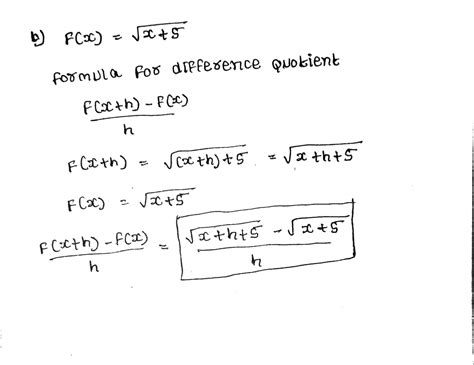 b) F(x) = √(x+5)
Formula for difference quotient
F(x+h) - F(x)
h
F(x+h) = √((x+h)+5) = √(x+h+5)
F(x) = √(x+5)
F(x+h) - F(x) = √(x+h+5) - √(x+5)
h h